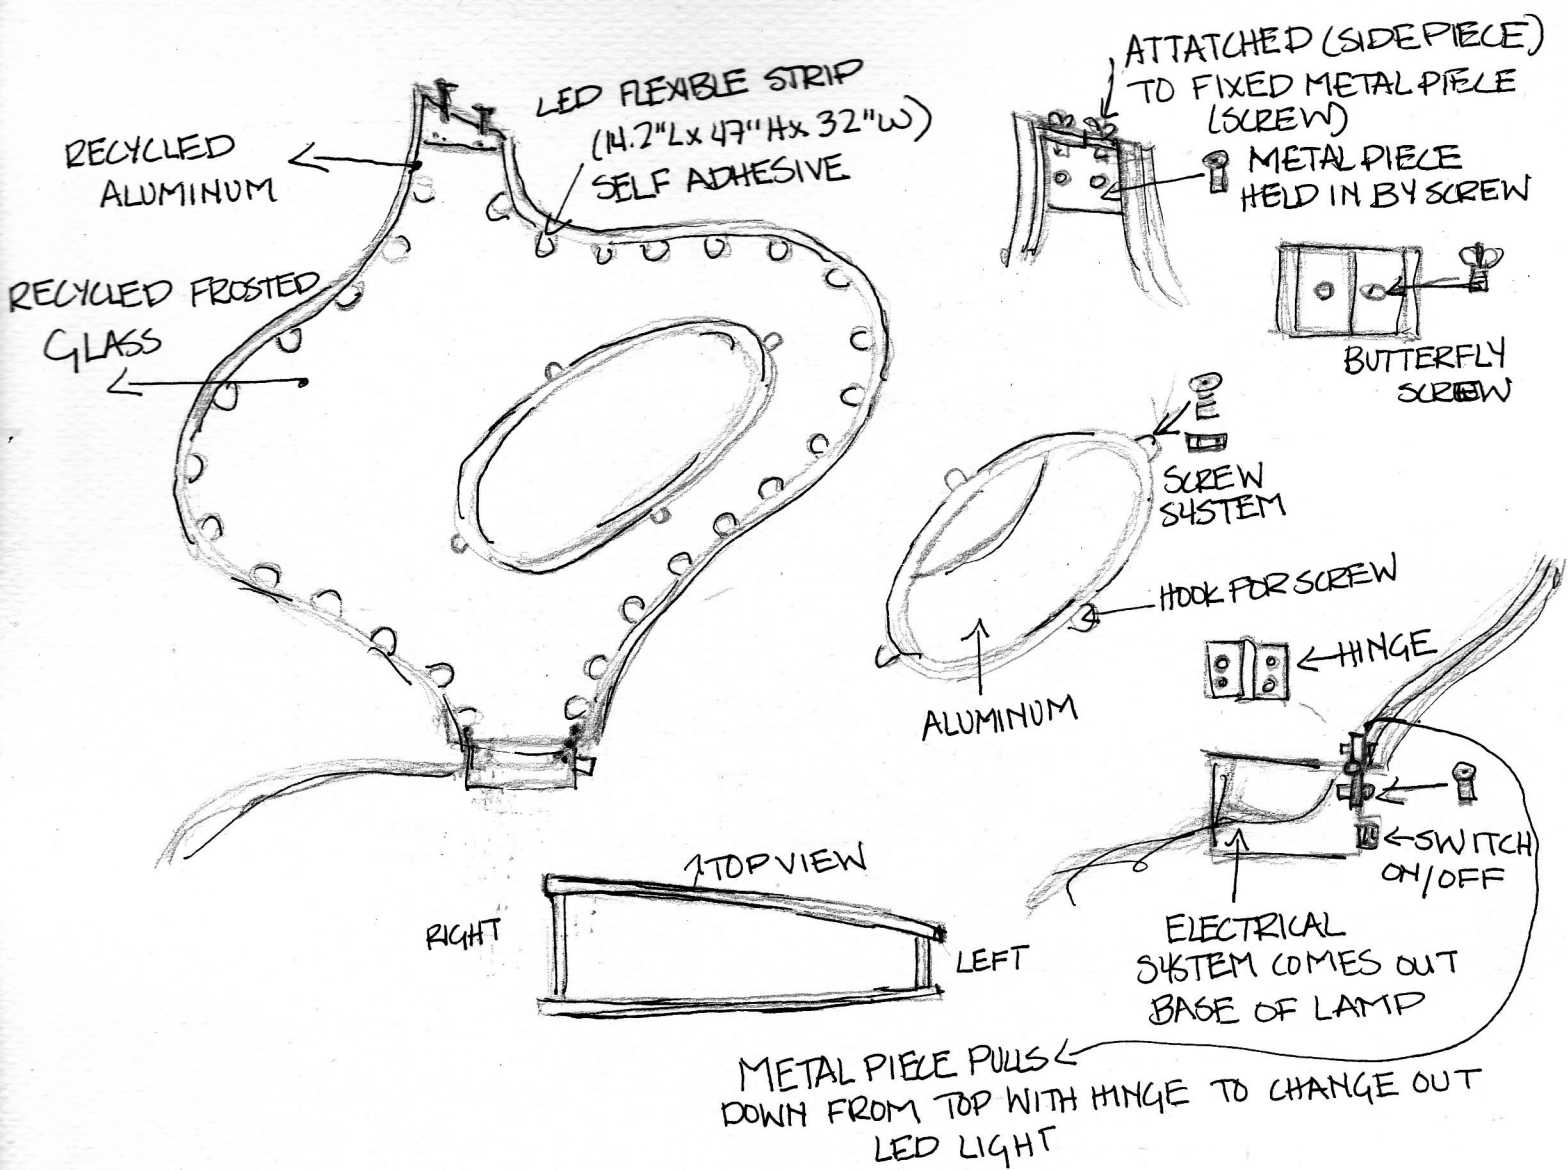 RECYCLED
ALUMINUM
LED FLEXIBLE STRIP
(14.2"L x 47"H x 32"W)
SELF ADHESIVE
RECYCLED FROSTED
GLASS
ATTATCHED (SIDE PIECE)
TO FIXED METAL PIECE
(SCREW)
METAL PIECE
HELD IN BY SCREW
BUTTERFLY
SCREW
SCREW
SYSTEM
HOOK FOR SCREW
ALUMINUM
HINGE
SWITCH
ON/OFF
ELECTRICAL
SYSTEM COMES OUT
BASE OF LAMP
TOP VIEW
RIGHT
LEFT
METAL PIECE PULLS
DOWN FROM TOP WITH HINGE TO CHANGE OUT
LED LIGHT